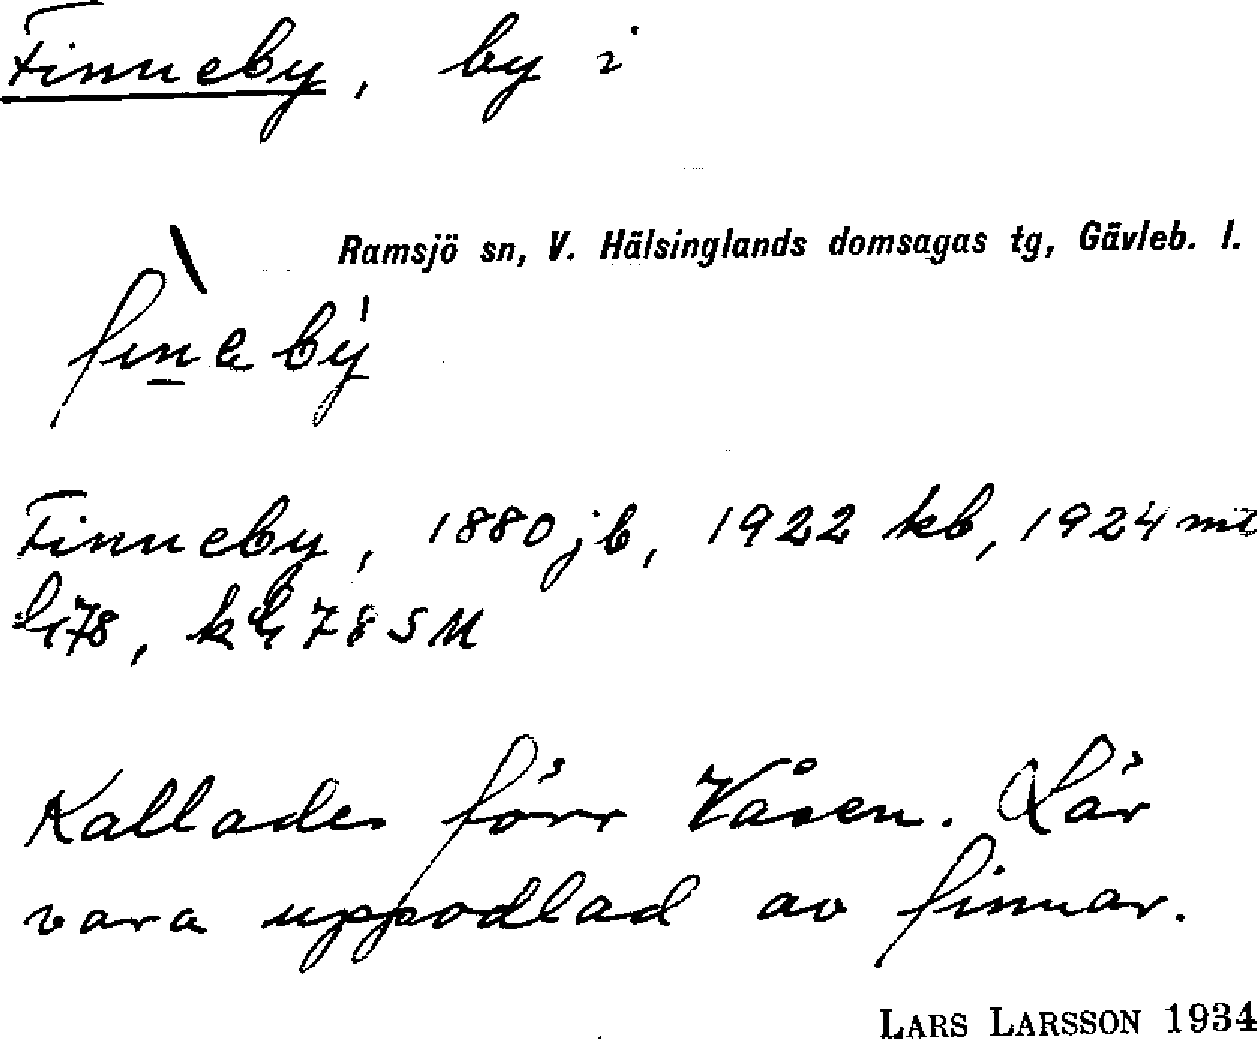 Finneby, by i
Ramsjö sn, V. Hälsinglands domsagas tg, Gävleb. l.
Finneby, 1880 jb, 1922 kb, 1924 mt
bl 78, kbl 78 SM
Kallades förr Våsen. Lär
vara uppodlad av finnar.
LARS LARSSON 1934